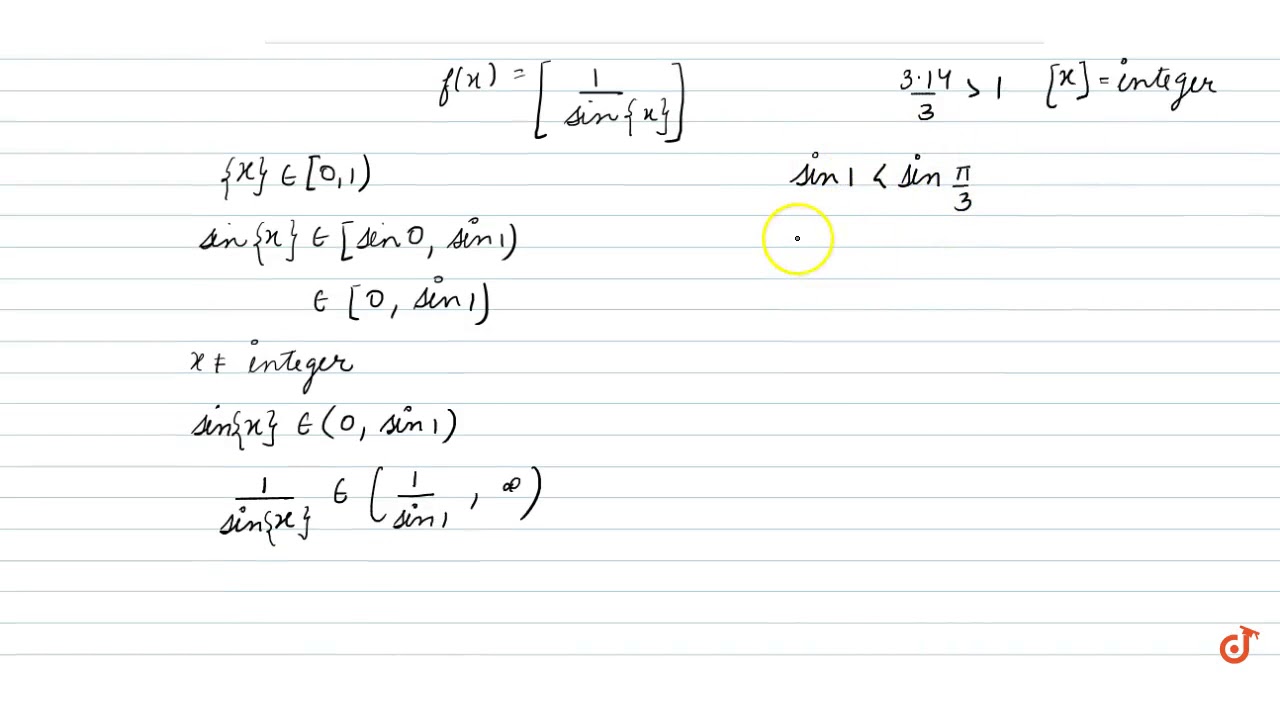 f(x) = [ 1 / sin{x} ]
3·14 / 3 > 1 [x] = integer
{x} ∈ [0,1)
sin 1 < sin π/3
sin{x} ∈ [sin 0, sin 1)
∈ [0, sin 1)
x ≠ integer
sin{x} ∈ (0, sin 1)
1 / sin{x} ∈ ( 1 / sin 1 , ∞ )